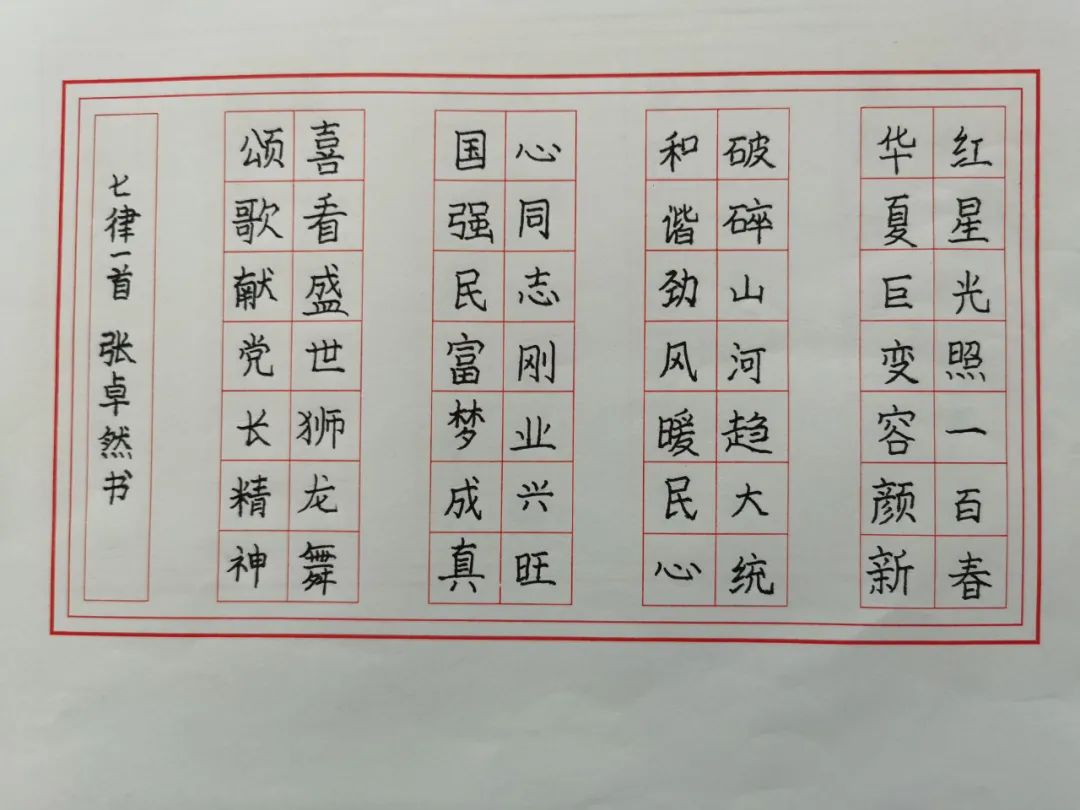 红星光照一百春
华夏巨变容颜新
破碎山河趋大统
和谐劲风暖民心
心同志刚业兴旺
国强民富梦成真
喜看盛世狮龙舞
颂歌献党长精神
七律一首 张卓然书